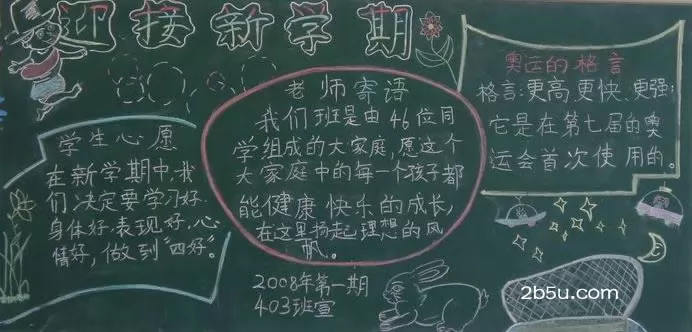 迎接新学期
学生心愿
在新学期中,我
们决定要学习好.
身体好.表现好.心
情好,做到“四好”。
老师寄语
我们班是由46位同
学组成的大家庭,愿这个
大家庭中的每一个孩子都
能健康快乐的成长,
在这里扬起理想的风
帆。
2008年第一期
403班宣
奥运的格言
格言:更高更快、更强;
它是在第七届的奥
运会首次使用的。
2b5u.com